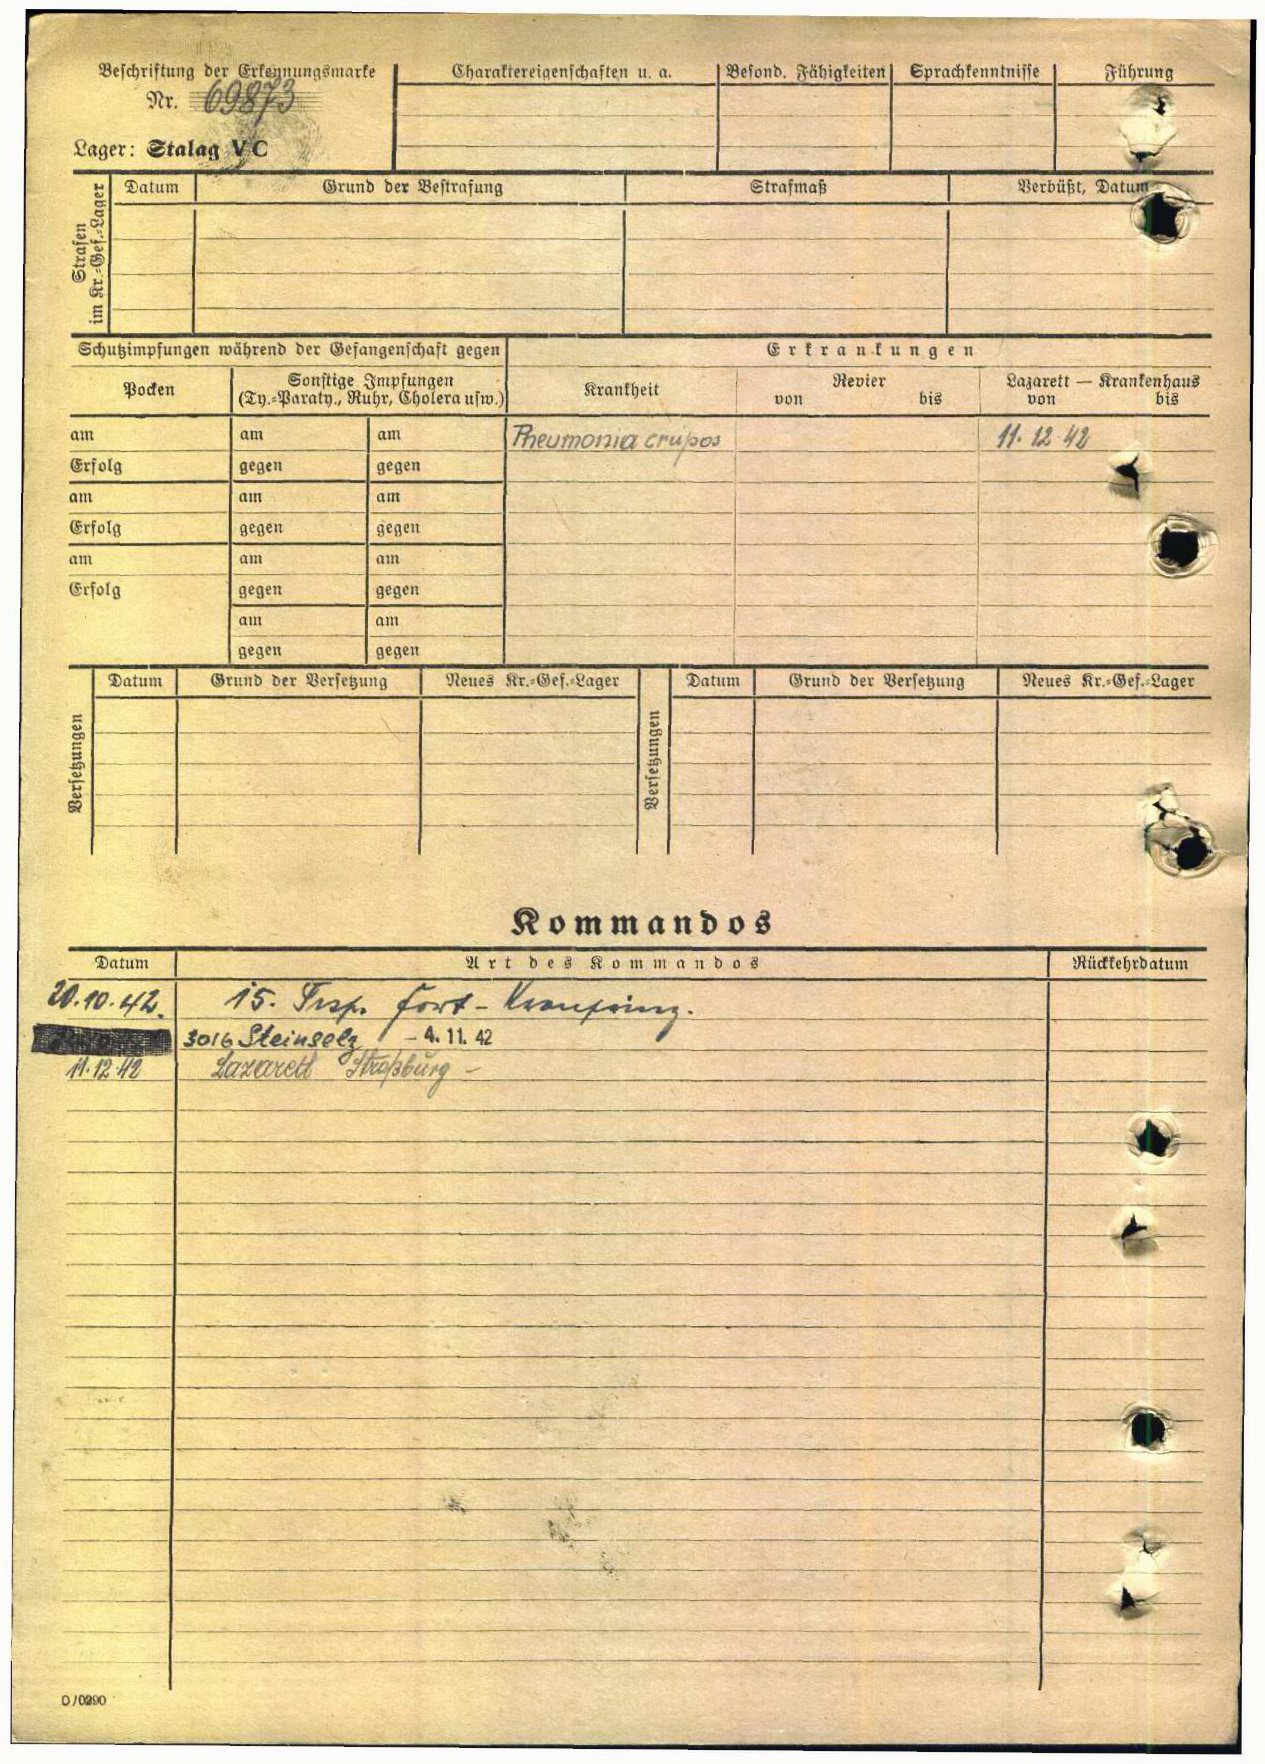 Beschriftung der Erkennungsmarke
Nr. 69873
Lager: Stalag V C
Charaktereigenschaften u. a.
Besond. Fähigkeiten
Sprachkenntnisse
Führung
Strafen im Kr.=Gef.=Lager
Datum
Grund der Bestrafung
Strafmaß
Verbüßt, Datum
Schutzimpfungen während der Gefangenschaft gegen
Erkrankungen
Pocken
Sonstige Impfungen
(Ty.=Paraty., Ruhr, Cholera usw.)
Krankheit
Revier
von bis
Lazarett — Krankenhaus
von bis
am am am Pneumonia crupos 11. 12 42
Erfolg gegen gegen
am am am
Erfolg gegen gegen
am am am
Erfolg gegen gegen
am am
gegen gegen
Versetzungen
Datum Grund der Versetzung Neues Kr.=Gef.=Lager
Versetzungen
Datum Grund der Versetzung Neues Kr.=Gef.=Lager
Kommandos
Datum Art des Kommandos Rückkehrdatum
20.10.42. 15. Trsp. Fort - Kronprinz.
3016 Steinselz - 4. 11. 42
11.12 42 Lazarett Straßburg -
D/0290